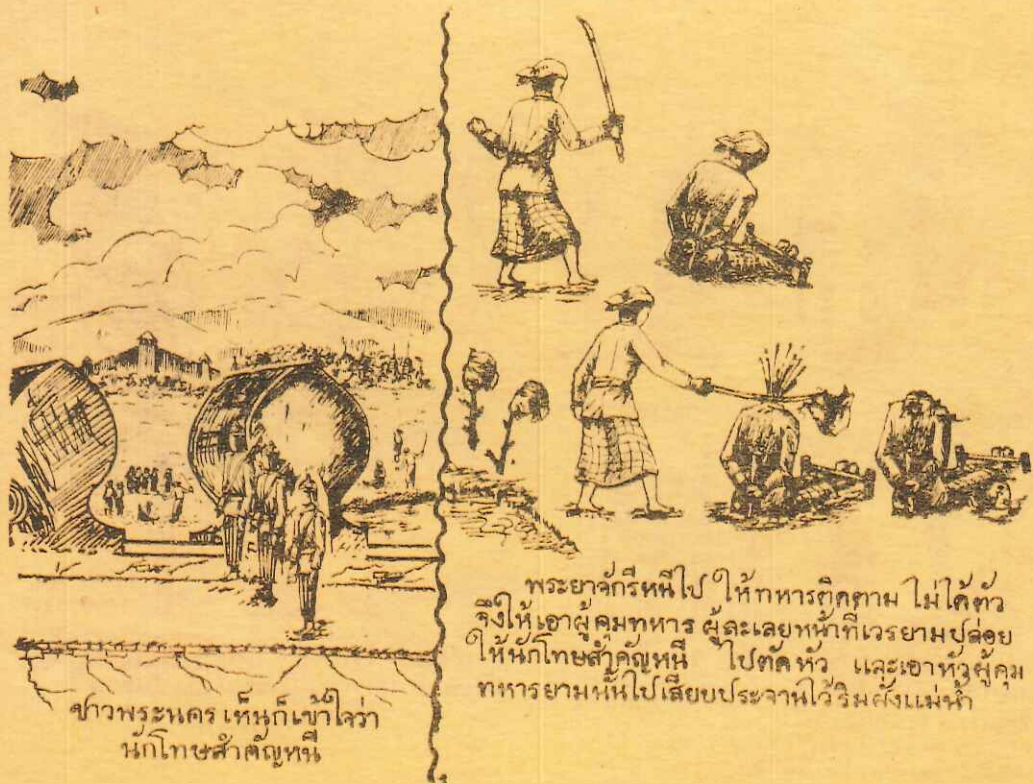 ชาวพระนคร เห็นก็เข้าใจว่า
นักโทษสำคัญหนี
พระยาจักรีหนีไป ให้ทหารติดตาม ไม่ได้ตัว
จึงให้เอาผู้คุมทหาร ผู้ละเลยหน้าที่เวรยามปล่อย
ให้นักโทษสำคัญหนี ไปตัดหัว และเอาหัวผู้คุม
ทหารยามนั้นไปเสียบประจานไว้ริมฝั่งแม่น้ำ